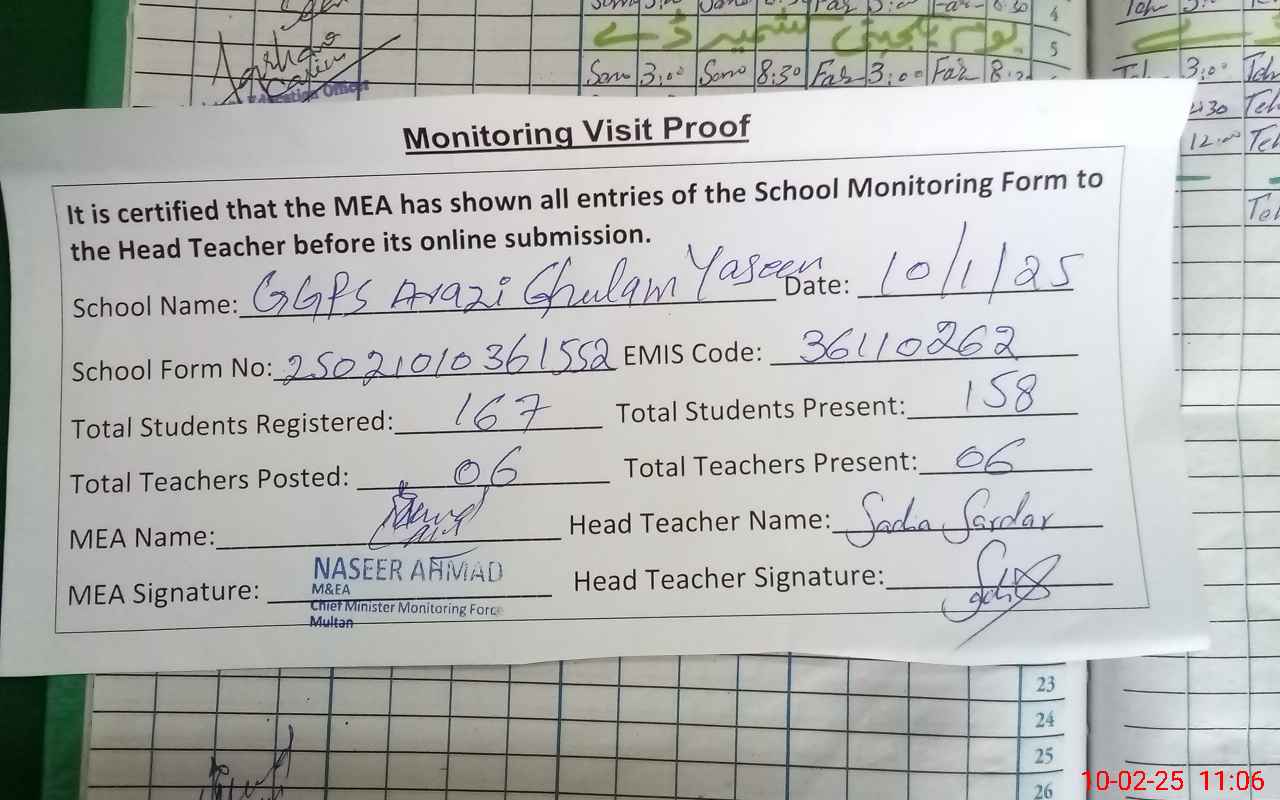 Som 3:00 Somo 8:30 Far 3:00 Far 8:30 4
یوم یکجہتی کشمیر ڈے 5
Som 3:00 Somo 8:30 Far 3:00 Far
3:00
12:00
Monitoring Visit Proof
It is certified that the MEA has shown all entries of the School Monitoring Form to
the Head Teacher before its online submission.
School Name: GGPS Arazi Ghulam Yaseen Date: 10/1/25
School Form No: 25021010361552 EMIS Code: 36110262
Total Students Registered: 167 Total Students Present: 158
Total Teachers Posted: 06 Total Teachers Present: 06
MEA Name: Head Teacher Name: Sadia Sardar
MEA Signature: NASEER AHMAD Head Teacher Signature:
M&EA
Chief Minister Monitoring Force
Multan
23
24
25
26
10-02-25 11:06